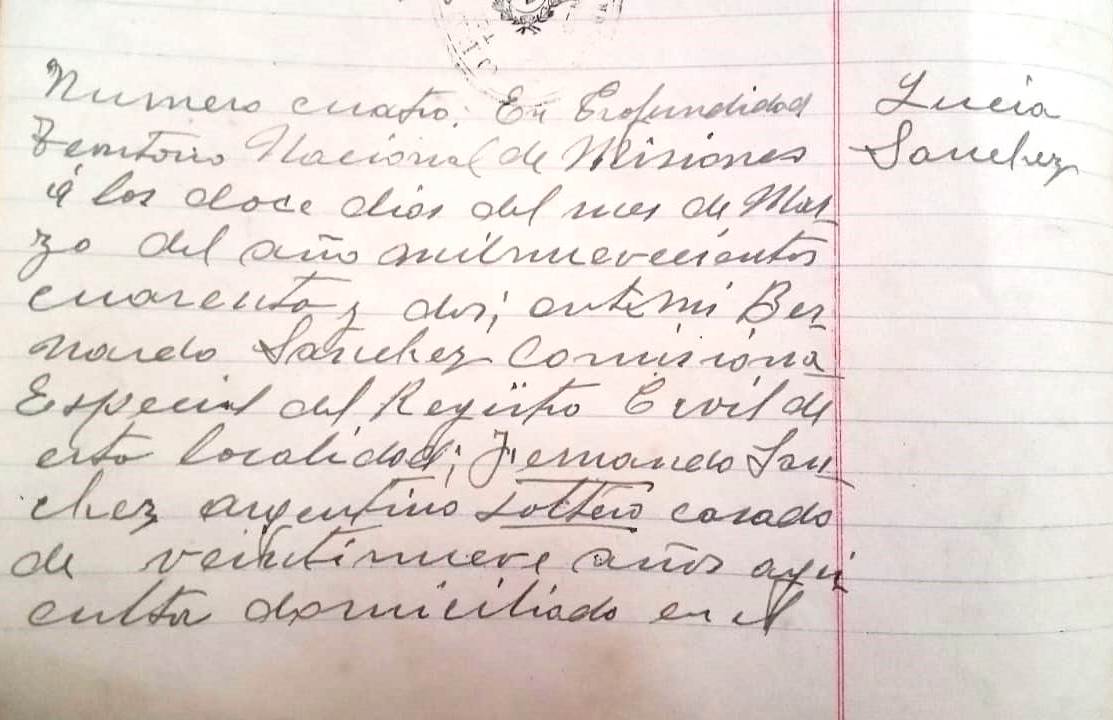 Numero cuatro. En Profundidad
Territorio Nacional de Misiones
á los doce dias del mes de Mar_
zo del año milnuevecientos
cuarenta y dos; ante mi Ber_
nardo Sanchez Comisiona_
Especial del Registro Civil de
esta localidad; Fernando San_
chez argentino soltero casado
de veintinueve años agri_
cultor domiciliado en el
Lucia
Sanchez